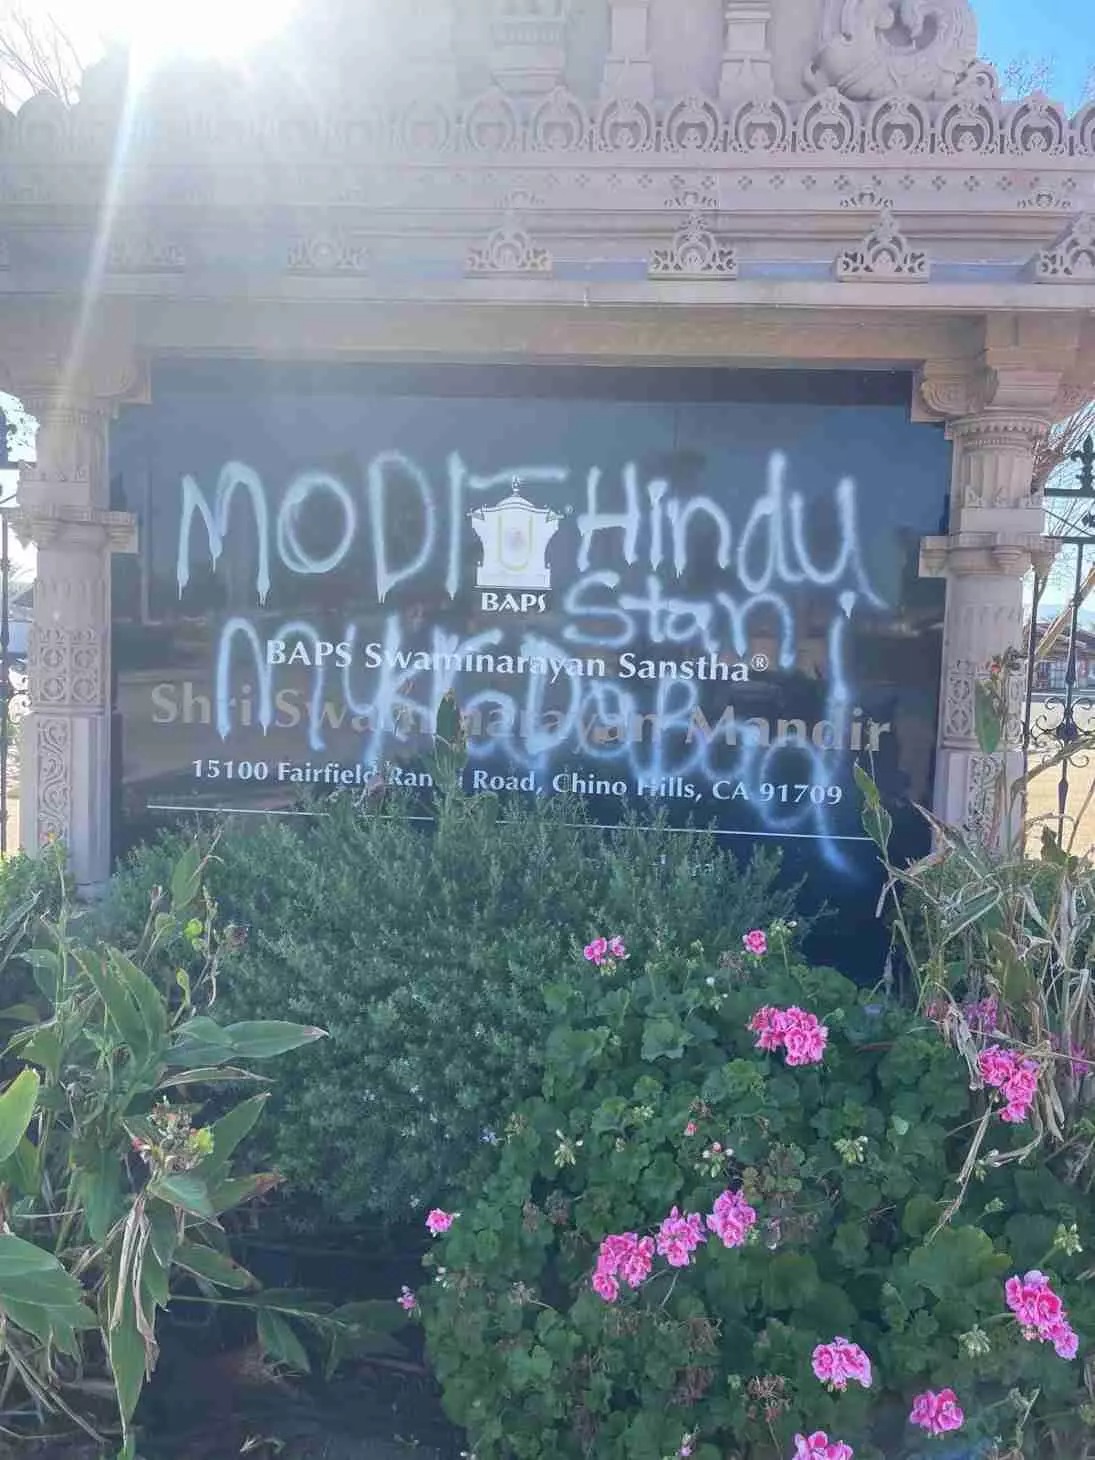 MODI Hindu
Stan
BAPS
BAPS Swaminarayan Sanstha®
Shri Swaminarayan Mandir
15100 Fairfield Ranch Road, Chino Hills, CA 91709